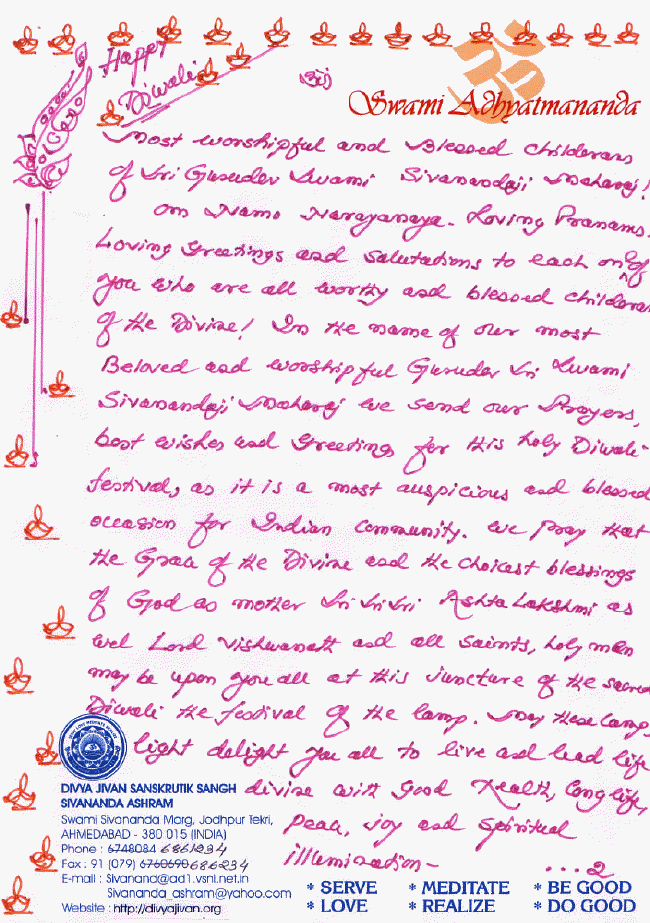 Happy
Diwali
Swami Adhyatmananda
Most worshipful and Blessed childerans
of Sri Gurudev Swami Sivanandaji Maharaj!
Om Namo Narayanaya. Loving Pranams.
Loving Greetings and salutations to each one of
you who are all worthy and blessed childeran
of the Divine! In the name of our most
Beloved and worshipful Gurudev Sri Swami
Sivanandaji Maharaj we send our Prayers,
best wishes and Greetings for this holy Diwali-
festival, as it is a most auspicious and blessed
occasion for Indian Community. We pray that
the Grace of the Divine and the choicest blessings
of God as mother Sri Sri Sri Ashta Lakshmi as
wel Lord Vishwanath and all saints, holy men
may be upon you all at this juncture of the sacred
Diwali the festival of the lamp. May these lamps
light delight you all to live and lead life
divine with Good Health, long life,
peace, joy and spiritual
illumination-
...2
DIVYA JIVAN SANSKRUTIK SANGH
SIVANANDA ASHRAM
Swami Sivananda Marg, Jodhpur Tekri,
AHMEDABAD - 380 015 (INDIA)
Phone : 6748084 6861234
Fax : 91 (079) 6760690 686234
E-mail : Sivanand@ad1.vsnl.net.in
Sivananda_ashram@yahoo.com
Website : http://divyajivan.org
* SERVE * MEDITATE * BE GOOD
* LOVE * REALIZE * DO GOOD